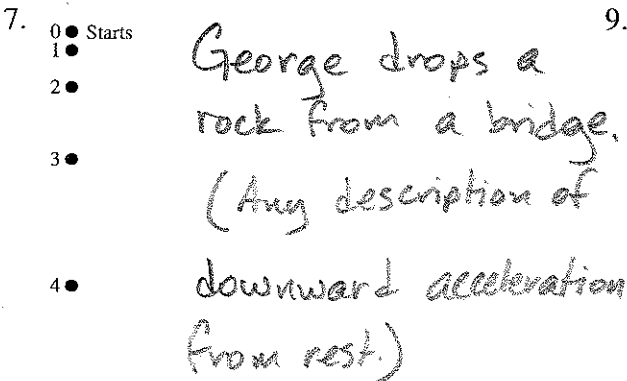 7.
9.
0 Starts
1
2
3
4
George drops a
rock from a bridge.
(Any description of
downward acceleration
from rest.)